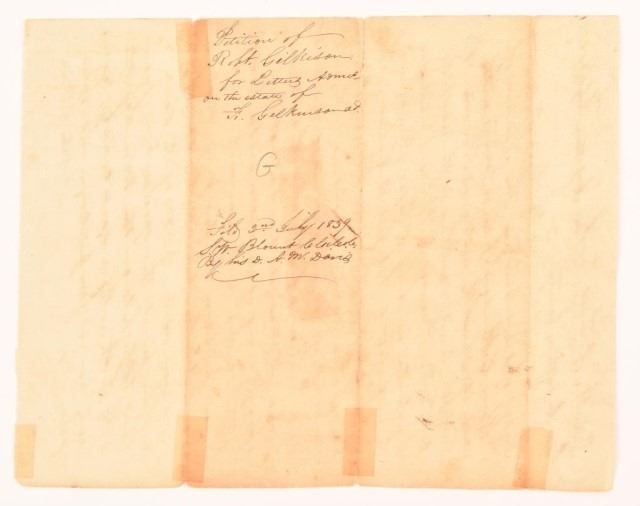 Petition of
Robt. Gilkison
for Letters Admr.
on the estate of
F. Gilkinson dd.
G
File 2nd July 1839
S. W. Blount Clerk
By his D. A. M. Davis